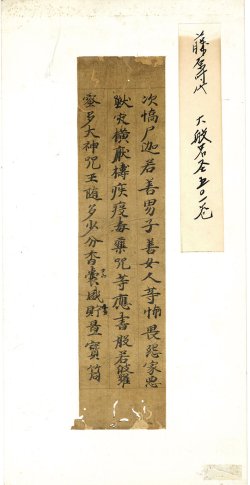 藤原時代 大般若経五〇一巻
次憍尸迦若善男子善女人等怖畏怨家惡
獣灾横厭禱疾疫毒藥咒等應書般若波羅
蜜多大神咒王随多少分香囊盛貯置寶筒